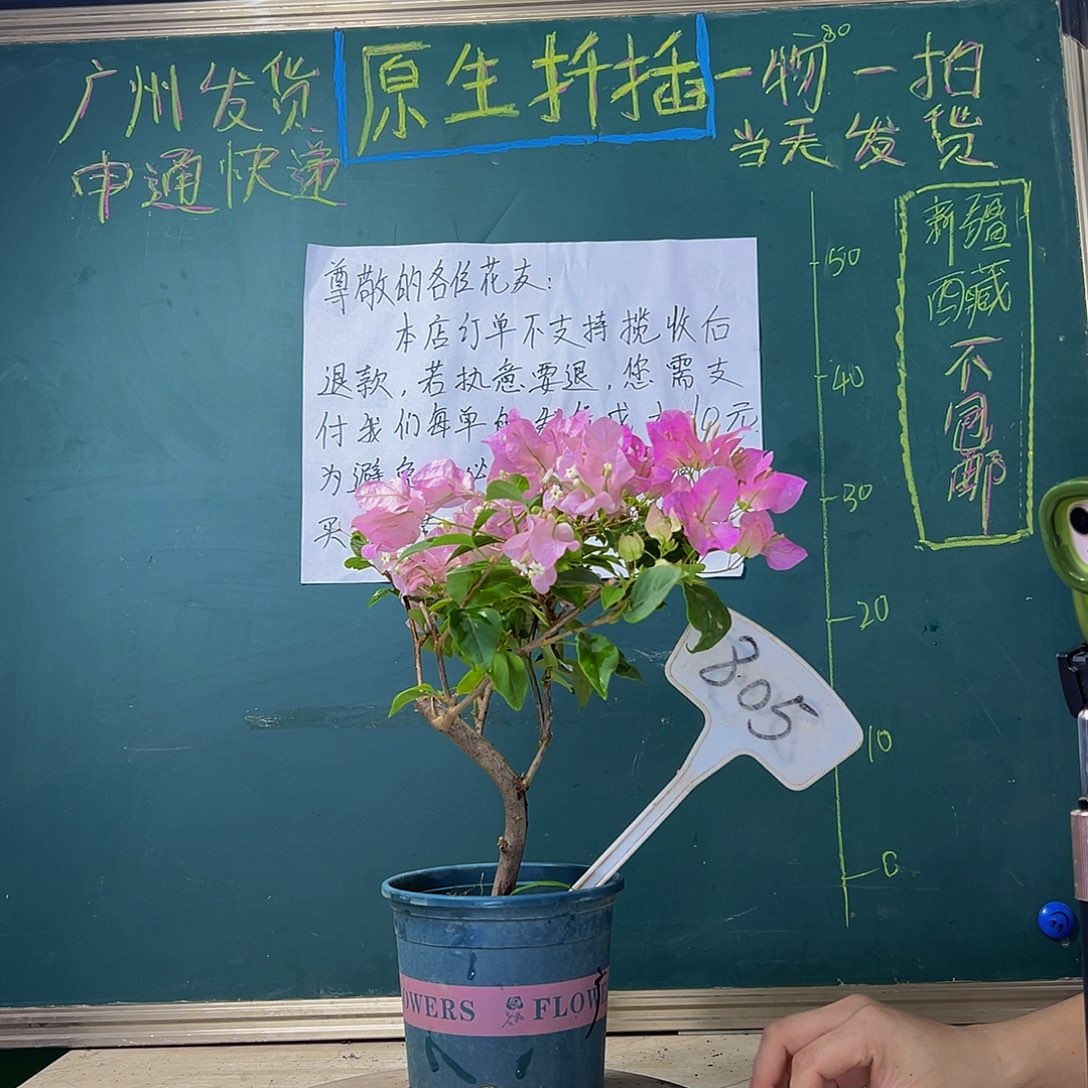 广州发货
申通快递
原生扦插
一物一拍
80
当天发货
新疆
西藏
不包邮
尊敬的各位花友:
本店订单不支持揽收后
退款,若执意要退,您需支
付我们每单的 10元
为避免
买
50
40
30
20
10
0
805
OWERS FLOW